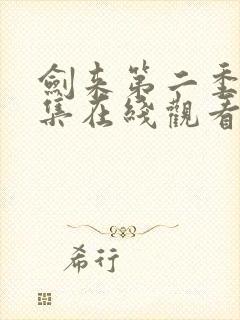 劍来第二季
集在綫觀看
希行